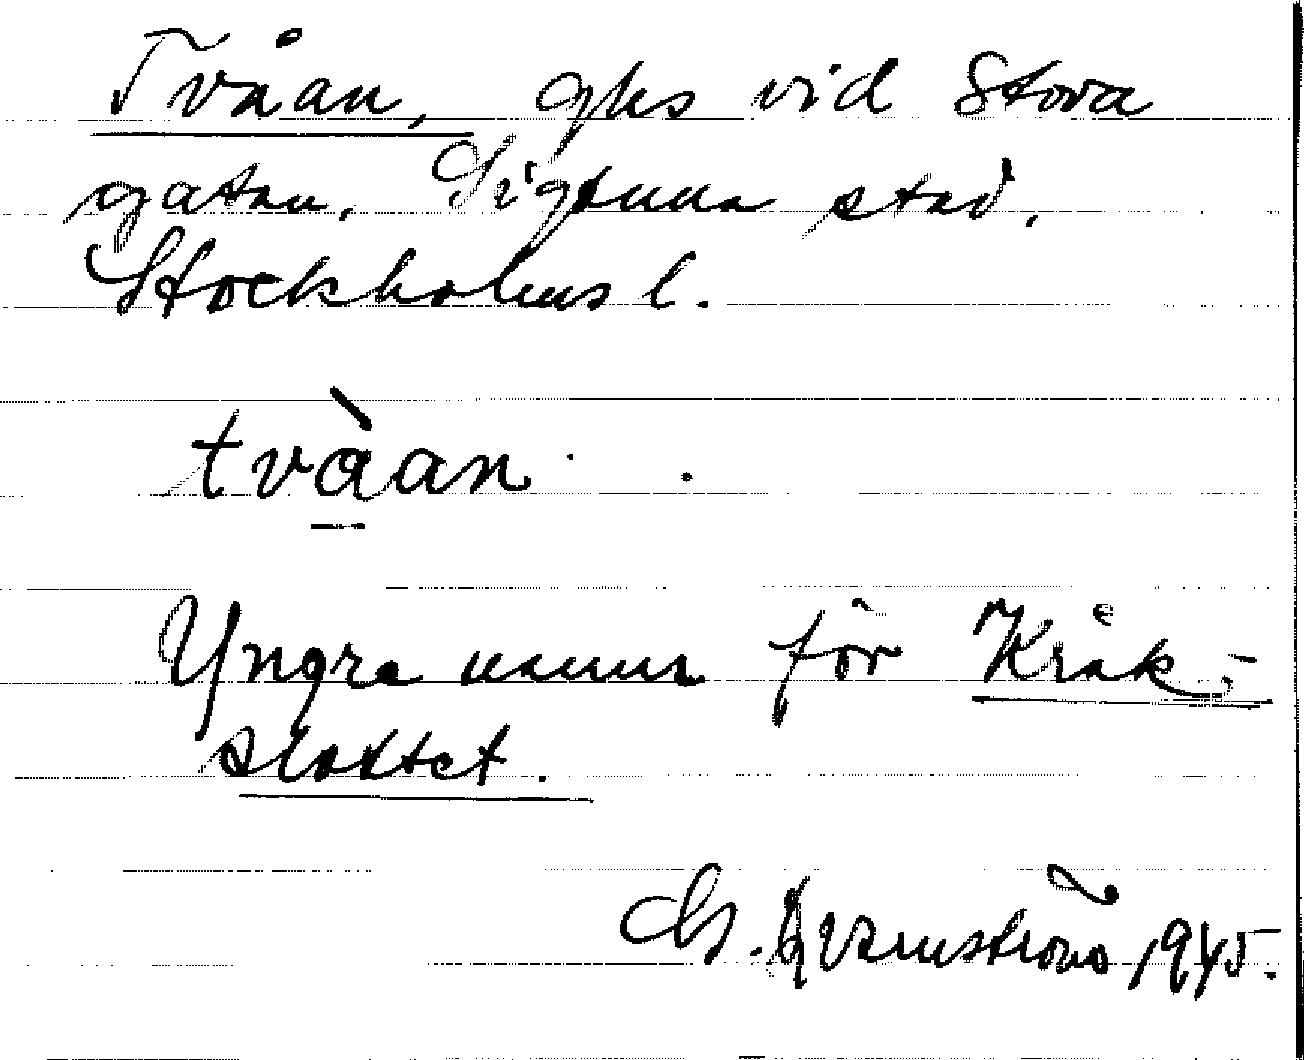 Tvåan, ghs vid Stora
gatan, Sigtuna stad,
Stockholms l.
två̀an
Yngre namn för Kråk-
slottet.
M. Qvarnström 1945.